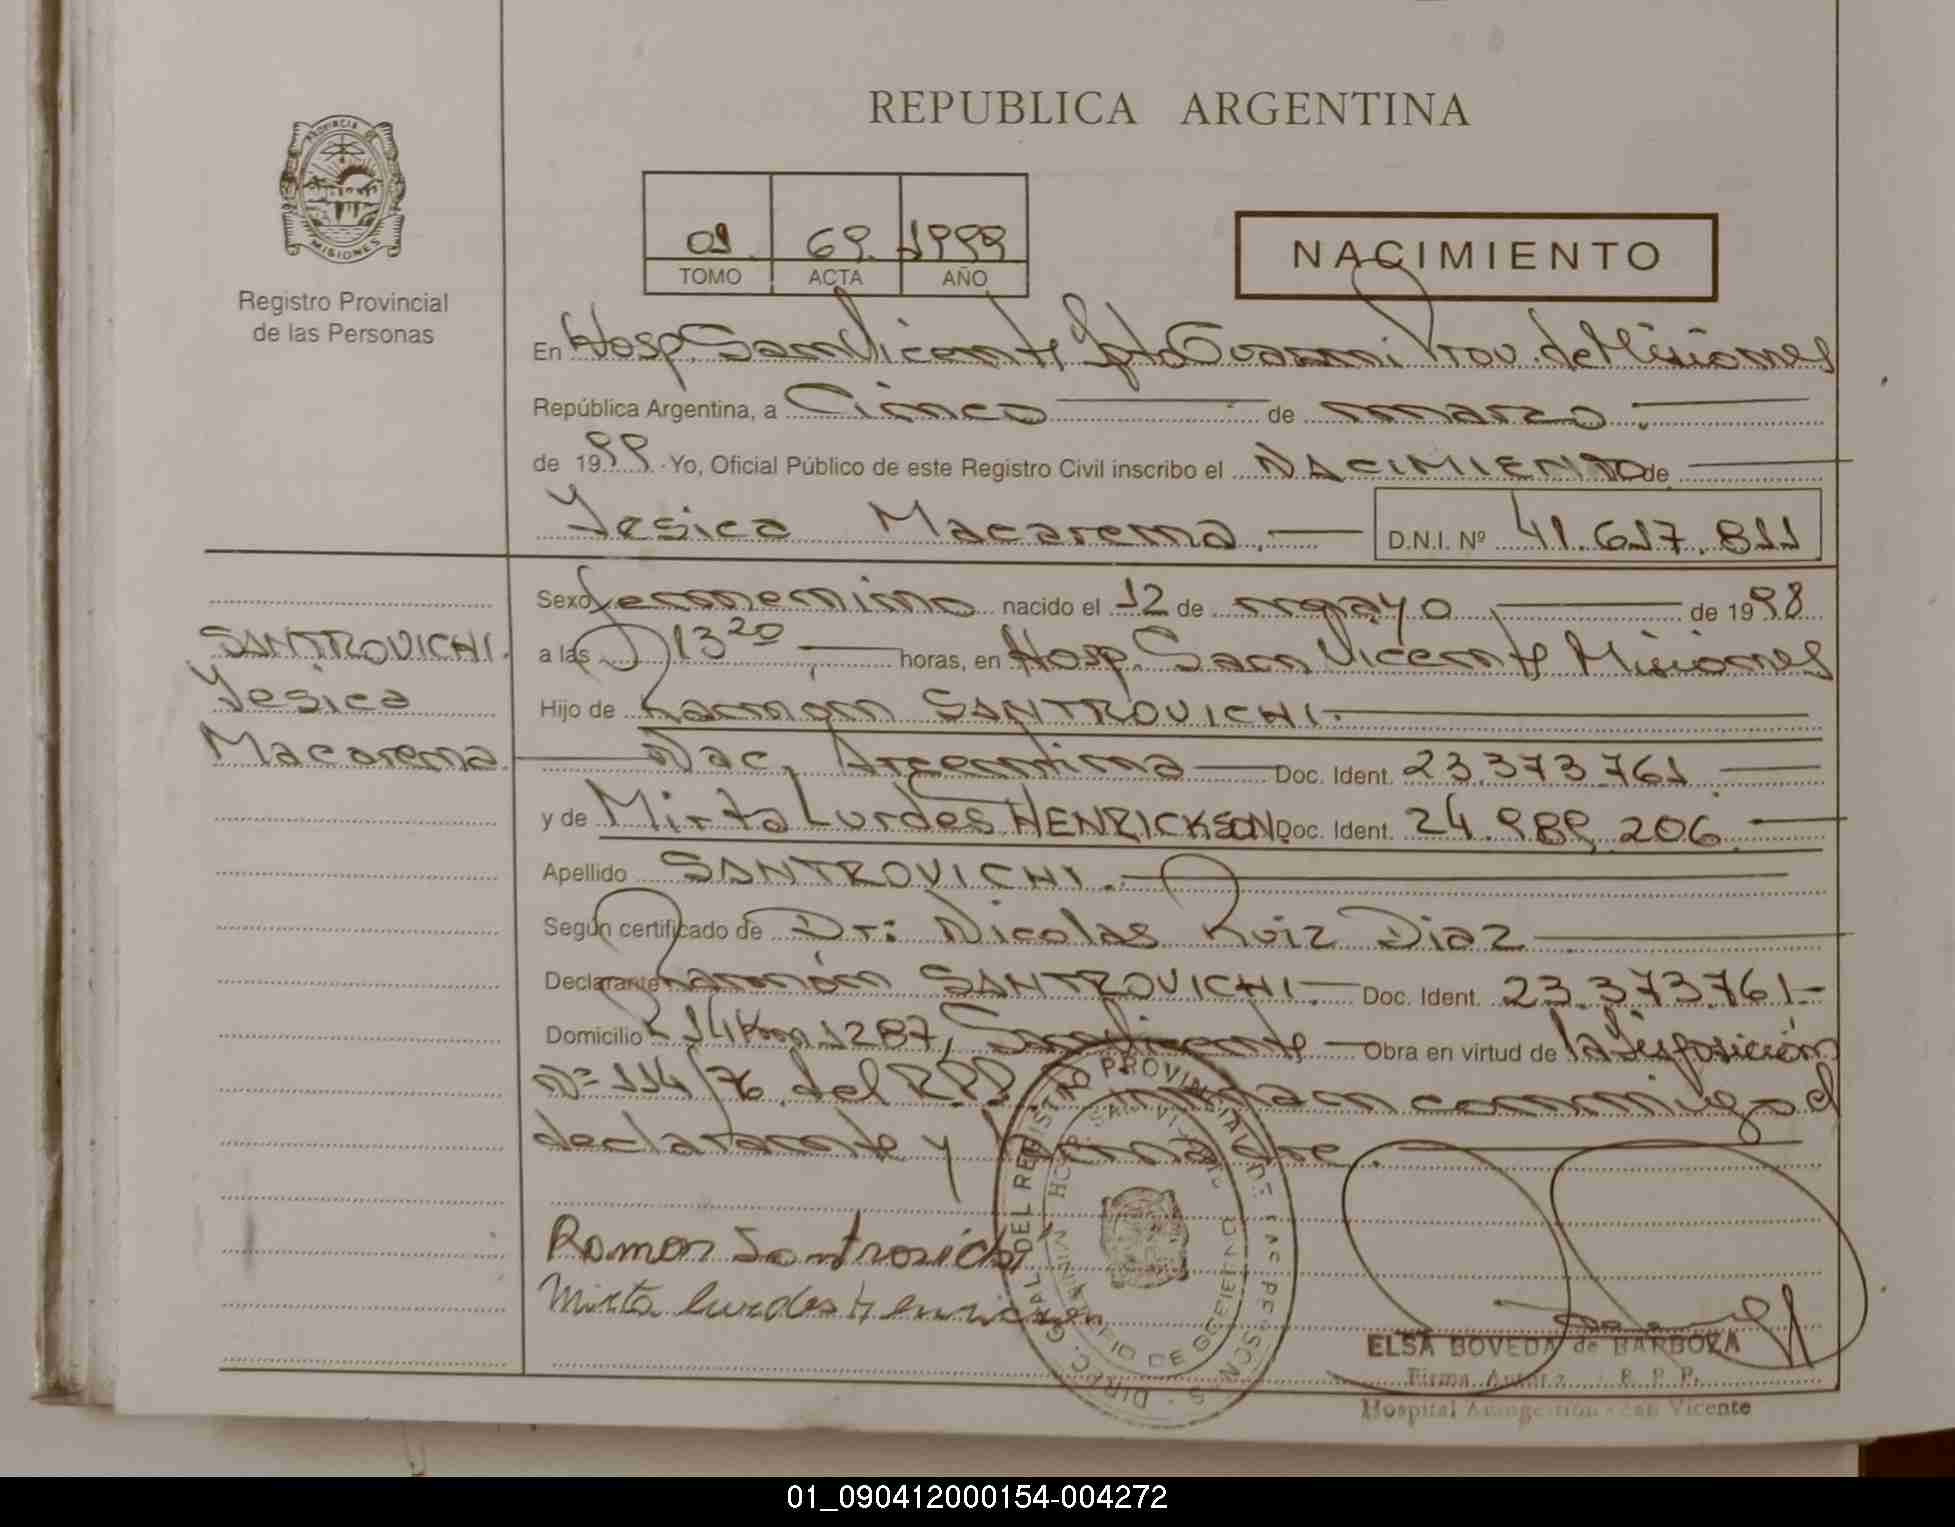 REPUBLICA ARGENTINA
PROVINCIA DE
MISIONES
Registro Provincial
de las Personas
01 69. 1999
TOMO ACTA AÑO
NACIMIENTO
En Hosp. San Vicente Dpto Guarani Prov. de Misiones
República Argentina, a Cinco de marzo.
de 1999 Yo, Oficial Público de este Registro Civil inscribo el NACIMIENTO de
Yesica Macarena. D.N.I. Nº 41.617.811
SANTROVICHI.
Yesica
Macarena
Sexo femenino nacido el 12 de mayo de 1998
a las 13 20 horas, en Hosp. San Vicente Misiones
Hijo de Ramon SANTROVICHI.
Nac. Argentina Doc. Ident. 23.373.761
y de Mirta Lurdes HENRICKSON. Doc. Ident. 24.989.206
Apellido SANTROVICHI.
Según certificado de Dr: Nicolas Ruiz Diaz
Declarante Ramón SANTROVICHI. Doc. Ident. 23.373.761-
Domicilio R 14 Km 1287, San Vicente Obra en virtud de la Disposición
Nº 114/76 del R.P.P. Firman conmigo el
declarante y la madre.
Ramon Santrovichi
Mirta Lurdes Henricson
DIREC. GRAL. DEL REGISTRO PROVINCIAL DE LAS PERSONAS
ELSA BOVEDA de BARBOZA
Firma Autoriz. R. P. P.
Hospital Autogestión - San Vicente
01_090412000154-004272